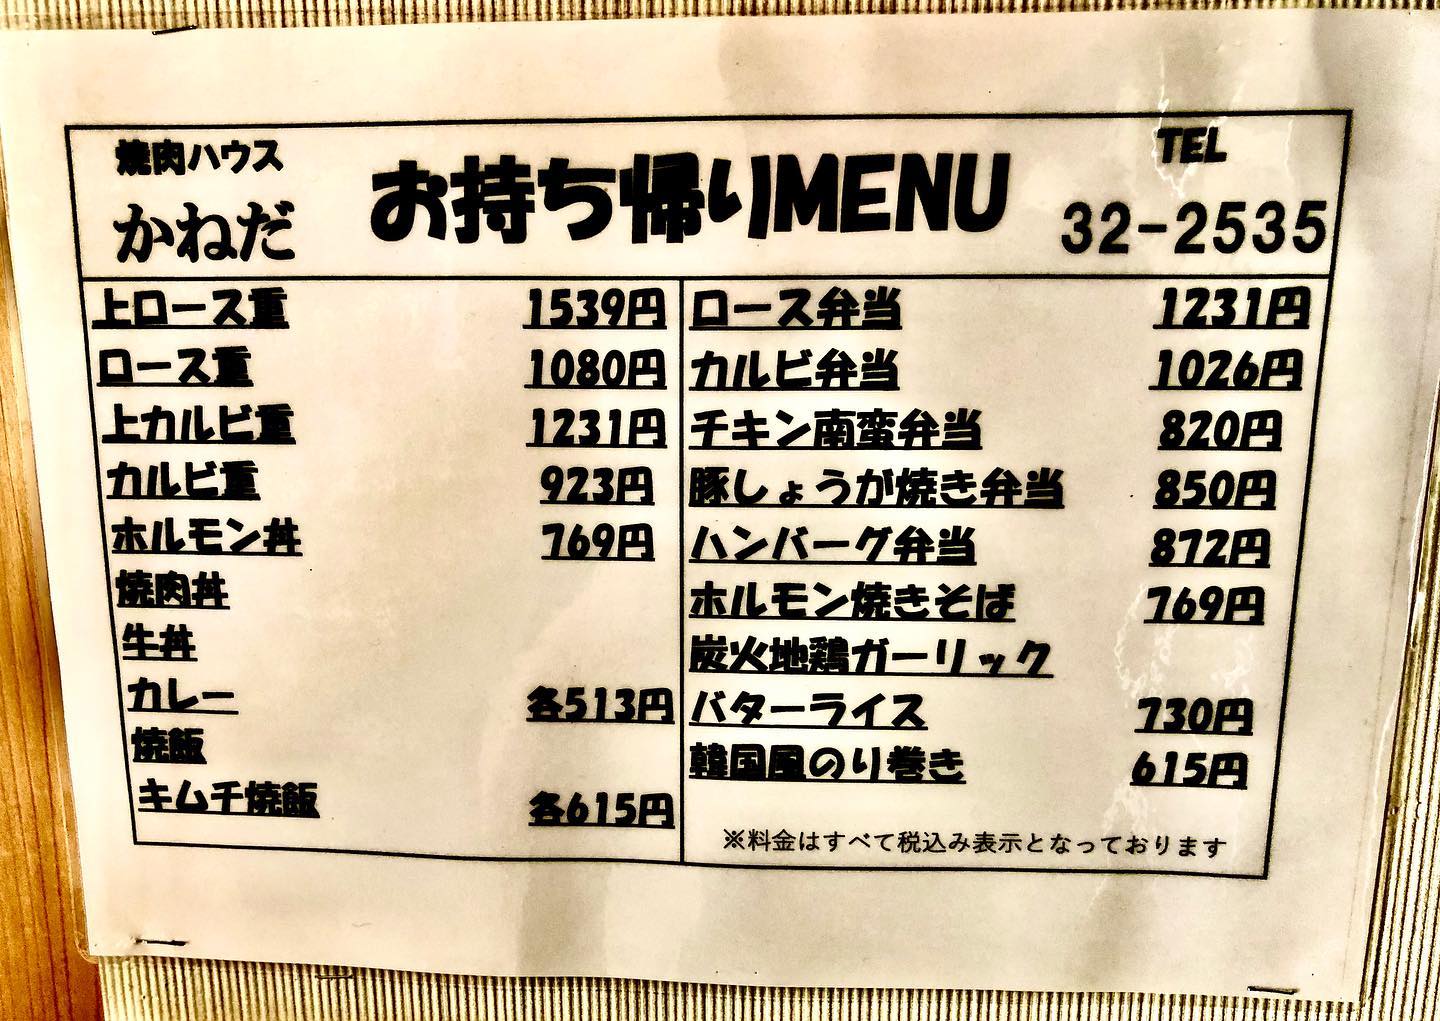 焼肉ハウス
かねだ
お持ち帰りMENU
TEL
32-2535
上ロース重 1539円
ロース重 1080円
上カルビ重 1231円
カルビ重 923円
ホルモン丼 769円
焼肉丼
牛丼
カレー 各513円
焼飯
キムチ焼飯 各615円
ロース弁当 1231円
カルビ弁当 1026円
チキン南蛮弁当 820円
豚しょうが焼き弁当 850円
ハンバーグ弁当 872円
ホルモン焼きそば 769円
炭火地鶏ガーリック
バターライス 730円
韓国風のり巻き 615円
※料金はすべて税込み表示となっております